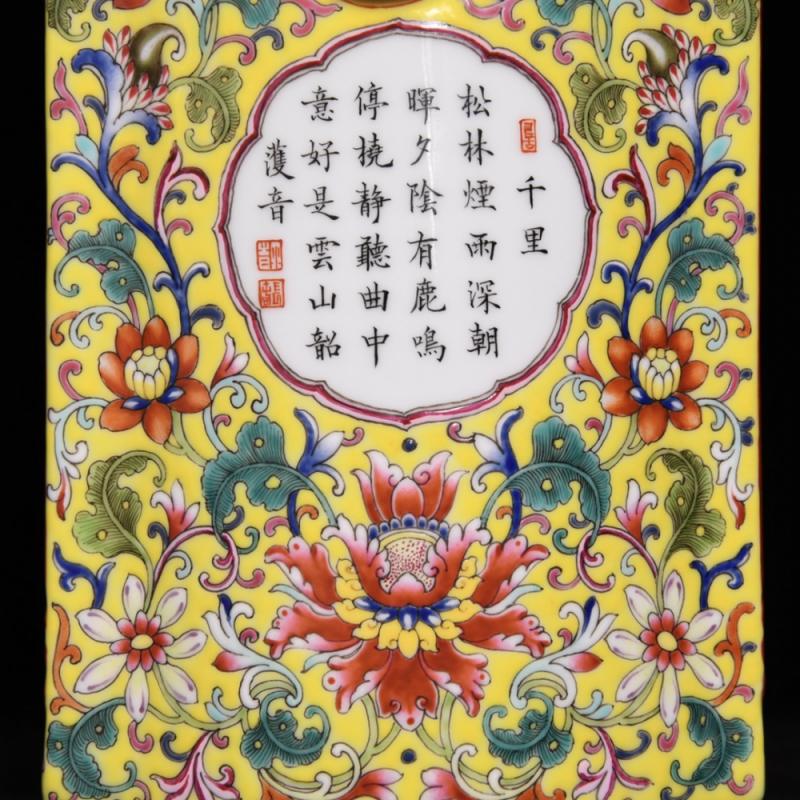 千里
松林煙雨深朝
暉夕陰有鹿鳴
停撓静聽曲中
意好是雲山韶
濩音